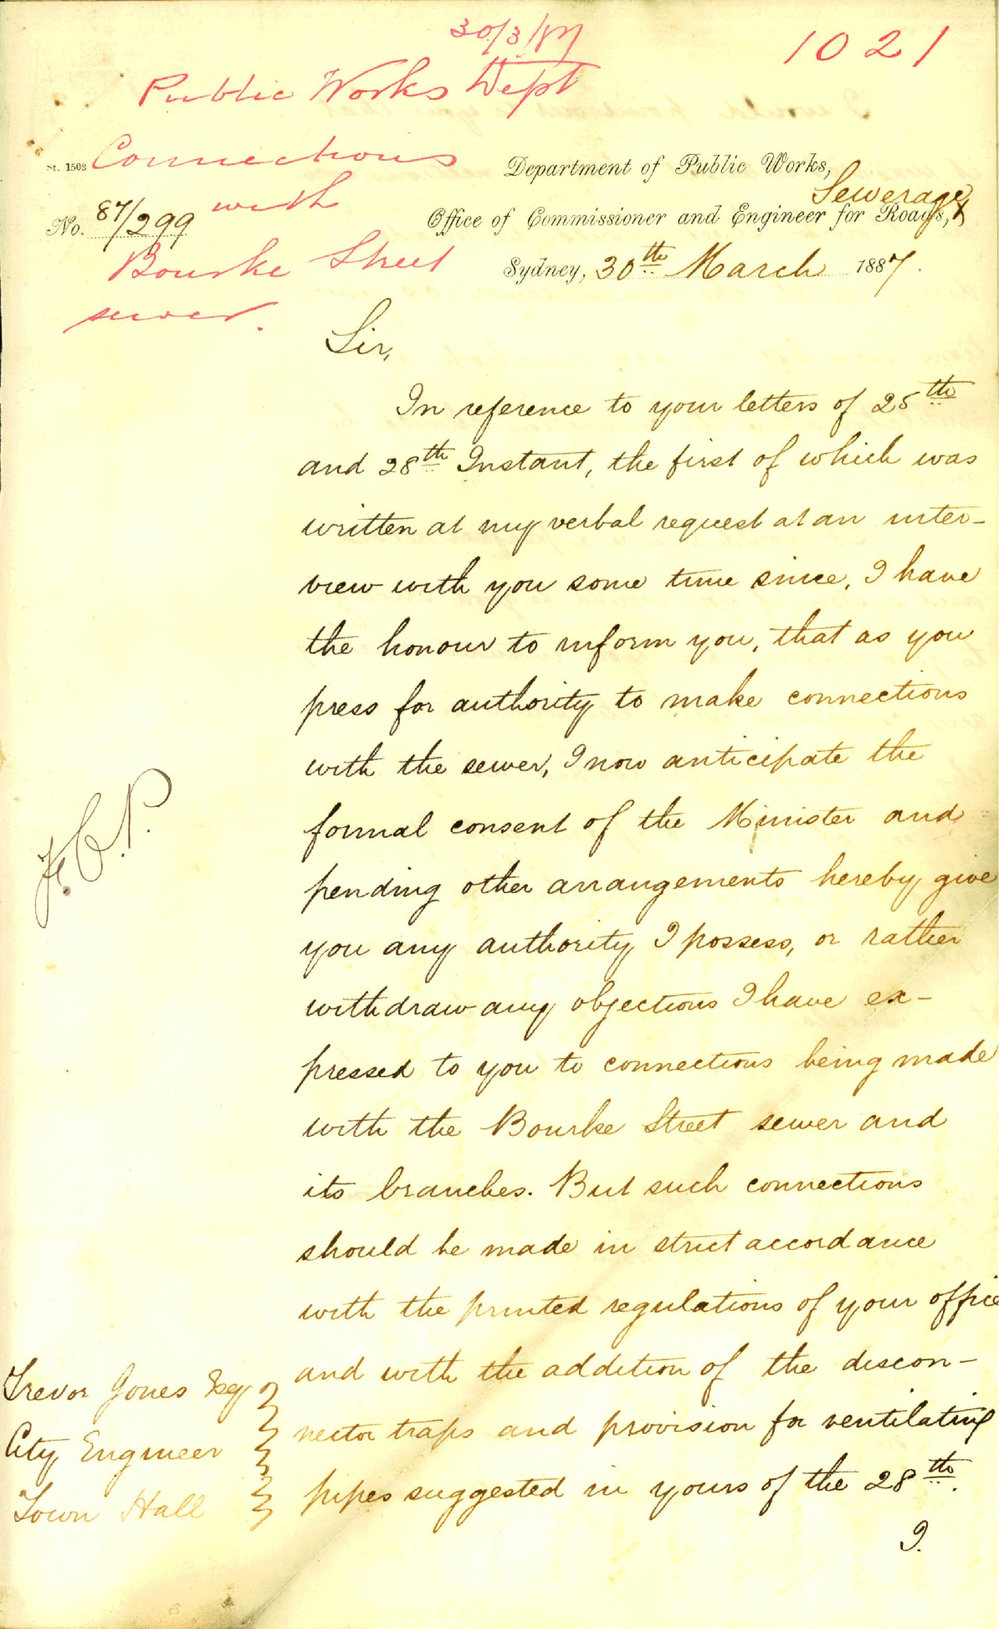 30/3/87
1021
Public Works Dept
Connections
with
Bourke Street
sewer.
St. 1508
No. 87/299
Department of Public Works,
Sewerage &
Office of Commissioner and Engineer for Roads,
Sydney, 30th March 1887.
Sir,
In reference to your letters of 25th
and 28th Instant, the first of which was
written at my verbal request at an inter-
view with you some time since, I have
the honour to inform you, that as you
press for authority to make connections
with the sewer, I now anticipate the
formal consent of the Minister and
pending other arrangements hereby give
you any authority I possess, or rather
withdraw any objections I have ex-
pressed to you to connections being made
with the Bourke Street sewer and
its branches. But such connections
should be made in strict accordance
with the printed regulations of your office
and with the addition of the discon-
nector traps and provision for ventilating
pipes suggested in yours of the 28th.
I.
Trevor Jones Esq
City Engineer
Town Hall